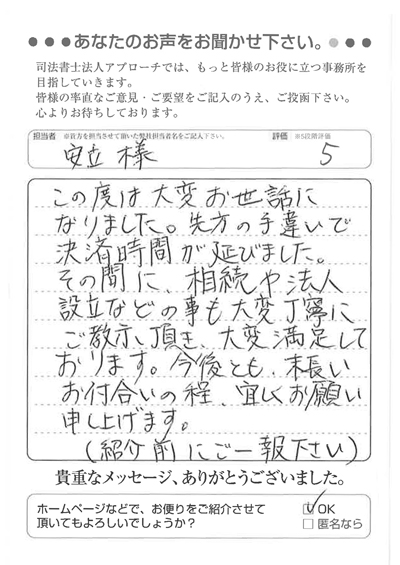 ●●●あなたのお声をお聞かせ下さい。●●●
司法書士法人アプローチでは、もっと皆様のお役に立つ事務所を
目指していきます。
皆様の率直なご意見・ご要望をご記入のうえ、ご投函下さい。
心よりお待ちしております。
担当者 ※貴方を担当させて頂いた弊社担当者名をご記入下さい。 評価 ※5段階評価
安立 様 5
この度は大変お世話に
なりました。先方の手違いで
決済時間が延びました。
その間に、相続や法人
設立などの事も大変丁寧に
ご教示頂き、大変満足して
おります。今後とも、末長い
お付合いの程、宜しくお願い
申し上げます。
(紹介前にご一報下さい)
貴重なメッセージ、ありがとうございました。
ホームページなどで、お便りをご紹介させて
頂いてもよろしいでしょうか?
☑OK
□匿名なら